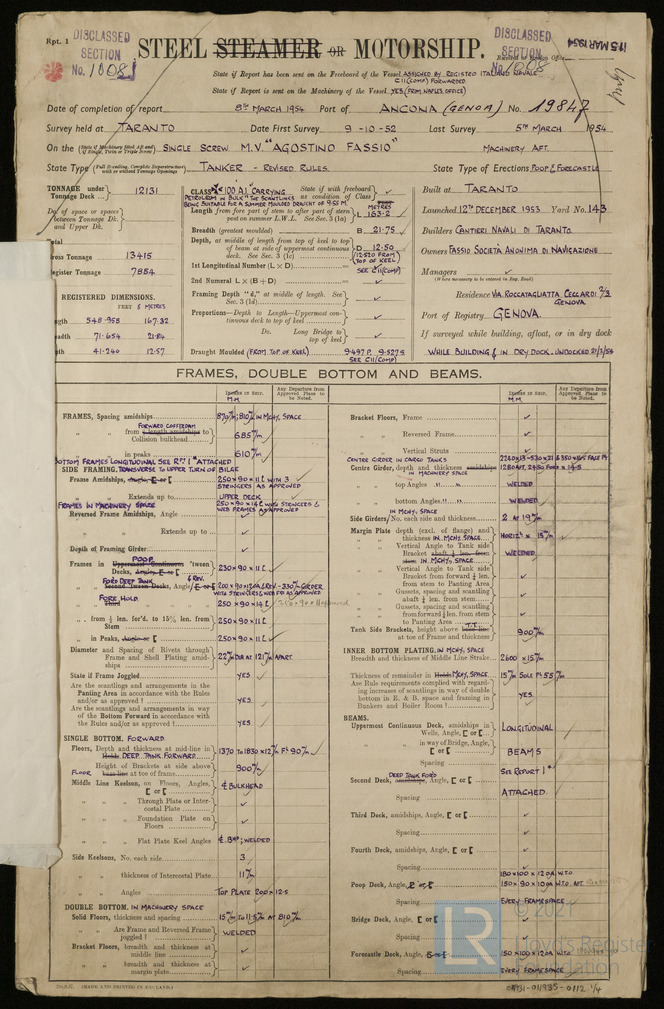 Rpt. 1
DISCLASSED
SECTION
No. 1008
DISCLASSED
SECTION
No. 1008
15 MAR 1954
STEEL STEAMER OR MOTORSHIP.
State if Report has been sent on the Freeboard of the Vessel ASSIGNED BY REGISTRO ITALIANO NAVALE
C11(COMP) FORWARDED
State if Report is sent on the Machinery of the Vessel YES (FRM. NAPLES OFFICE)
Date of completion of report 8TH MARCH 1954 Port of ANCONA (GENOA) No. 19847
Survey held at TARANTO Date First Survey 9-10-52 Last Survey 5TH MARCH 1954
On the SINGLE SCREW M.V. "AGOSTINO FASSIO" MACHINERY AFT.
State Type TANKER - REVISED RULES. State Type of Erections POOP & FORECASTLE
TONNAGE under Tonnage Deck 12131
Do. of space or spaces between Tonnage Dk. and Upper Dk.
Total
Gross Tonnage 13415
Register Tonnage 7854
REGISTERED DIMENSIONS.
FEET & METRES
Length 548.958 167.32
Breadth 71.654 21.84
Depth 41.240 12.57
CLASS 100 A1 "CARRYING State if with freeboard
PETROLEUM IN BULK" THE SCANTLINGS as condition of Class
BEING SUITABLE FOR A SUMMER MOULDED DRAUGHT OF 9.51 M.
METRES
Length from fore part of stem to after part of stern post on summer L.W.L. See Sec. 3 (1a) L 163.2
Breadth (greatest moulded) B 21.75
Depth, at middle of length from top of keel to top of beam at side of uppermost continuous deck. See Sec. 3 (1c) D 12.50
(12.520 FROM TOP OF KEEL)
1st Longitudinal Number (L × D) SEE C11(COMP)
2nd Numeral L × (B + D)
Framing Depth "d," at middle of length. See Sec. 3 (1d)
Proportions—Depth to Length—Uppermost continuous deck to top of keel
Do. Long Bridge to top of keel
Draught Moulded (FROM TOP OF KEEL) 9.497 P. 9.527 S
SEE C11(COMP)
Built at TARANTO
Launched 12TH DECEMBER 1953 Yard No. 143
Builders CANTIERI NAVALI DI TARANTO
Owners FASSIO SOCIETÀ ANONIMA DI NAVIGAZIONE
Managers
(Where necessary to be entered in Reg. Book)
Residence VIA ROCCATAGLIATTA CECCARDI 7/3 GENOVA
Port of Registry GENOVA
If surveyed while building, afloat, or in dry dock
WHILE BUILDING & IN DRY DOCK. UNDOCKED 21/2/54
FRAMES, DOUBLE BOTTOM AND BEAMS.
M.M.
Any Departure from Approved Plans to be Noted.
M.M.
Any Departure from Approved Plans to be Noted.
FRAMES, Spacing amidships 870 m/m; 810 m/m IN MCHY. SPACE
FORWARD COFFERDAM
from ⅕ length amidships to Collision bulkhead 685 m/m
in peaks 610 m/m
BOTTOM FRAMES LONGITUDINAL SEE RPT 1* ATTACHED
SIDE FRAMING. TRANSVERSE TO UPPER TURN OF BILGE
Frame Amidships, Angle, [ or [ 250 x 90 x 11 L WITH 3 STRINGERS AS APPROVED
Extends up to UPPER DECK
FRAMES IN MACHINERY SPACE 250 x 90 x 14 L WITH STRINGERS & WEB FRAMES AS APPROVED
Reversed Frame Amidships, Angle
Extends up to
Depth of Framing Girder
POOP
Frames in Uppermost Continuous 'tween Decks, Angle, [ or [ 230 x 90 x 11 L
FORD DEEP TANK & REV.
Second 'tween Decks, Angle, [ or [ WITH STRINGERS & WEB FDS AS APPROVED
FORE HOLD
Third 250 x 90 x 14 L
from ⅕ len. for'd. to 15% len. from Stem 250 x 90 x 11 L
in Peaks, Angle or [ 250 x 90 x 11 L
Diameter and Spacing of Rivets through Frame and Shell Plating amidships 22 m/m DIA AT 121 m/m APART.
State if Frame Joggled YES
Are the scantlings and arrangements in the Panting Area in accordance with the Rules and/or as approved? YES
Are the scantlings and arrangements in way of the Bottom Forward in accordance with the Rules and/or as approved? YES
SINGLE BOTTOM. FORWARD
Floors, Depth and thickness at mid-line in Hold. DEEP TANK FORWARD 1370 TO 1830 x 12 m/m FL 90 m/m
Height of Brackets at side above FLOOR base line at toe of frame 900 m/m
Middle Line Keelson, on Floors, Angles, [ or [ ₵ BULKHEAD
Through Plate or Intercostal Plate
Foundation Plate on Floors
Flat Plate Keel Angles ₵ BHD; WELDED
Side Keelsons, No. each side 3
thickness of Intercostal Plate 11 m/m
Angles TOP PLATE 200 x 12.5
DOUBLE BOTTOM. IN MACHINERY SPACE
Solid Floors, thickness and spacing 15 m/m TO 11.5 m/m AT 810 m/m
Are Frame and Reversed Frame joggled? WELDED
Bracket Floors, breadth and thickness at middle line
breadth and thickness at margin plate
Bracket Floors, Frame
Reversed Frame
Vertical Struts
CENTRE GIRDER IN CARGO TANKS
Centre Girder, depth and thickness amidships IN MACHINERY SPACE
top Angles WELDED
bottom Angles WELDED
IN MCHY. SPACE
Side Girders, No. each side and thickness 2 AT 19 m/m
Margin Plate depth (excl. of flange) and thickness IN MCHY. SPACE HORIZL x 15 m/m
Vertical Angle to Tank side Bracket abaft ¼ len. from stem IN MCHY. SPACE WELDED
Vertical Angle to Tank side Bracket from forward ¼ len. from stem to Panting Area
Gussets, spacing and scantling abaft ¼ len. from stem
Gussets, spacing and scantling from forward ¼ len. from stem to Panting Area
Tank Side Brackets, height above T.T. at toe of Frame and thickness 900 m/m
INNER BOTTOM PLATING. IN MCHY. SPACE
Breadth and thickness of Middle Line Strake 2600 x 15 m/m
Thickness of remainder in Hold MCHY. SPACE 15 m/m SOLE PL 55 m/m
Are Rule requirements complied with regarding increases of scantlings in way of double bottom in E. & B. space and framing in Bunkers and Boiler Room? YES
BEAMS.
Uppermost Continuous Deck, amidships in Wells, Angle, [ or [ LONGITUDINAL
in way of Bridge, Angle, [ or [ BEAMS
Spacing SEE REPORT 1*
DEEP TANK FORD
Second Deck, amidships, Angle, [ or [ ATTACHED.
Spacing
Third Deck, amidships, Angle, [ or [
Spacing
Fourth Deck, amidships, Angle, [ or [
Spacing
180 x 100 x 12 OA W.T.O
Poop Deck, Angle, [ or [ 150 x 90 x 10 OA W.T.O. AFT.
Spacing EVERY FRAME SPACE
Bridge Deck, Angle, [ or [
Spacing
Forecastle Deck, Angle, [ or [ 150 x 100 x 12 OA W.T.O
Spacing EVERY FRAME SPACE
(MADE AND PRINTED IN ENGLAND.)
LR
© 2021
Lloyd's Register
Foundation